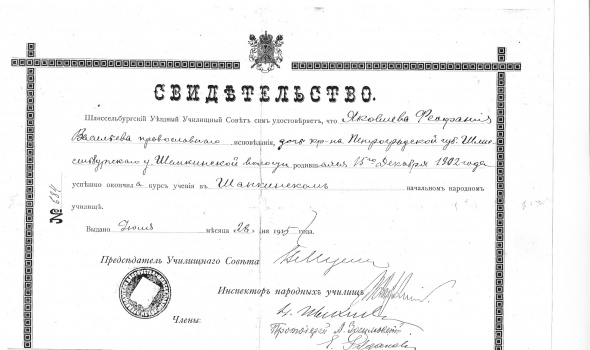 СВИДѢТЕЛЬСТВО.
Шлиссельбургскій Уѣздный Училищный Совѣтъ симъ удостовѣряетъ, что Яковлева
Васильева православнаго исповѣданія, дочь кр-на Петроградской губ. Шлис-
сельбургскаго у. Шапкинской волости родившаяся 15го Декабря 1902 года
успѣшно окончила курсъ ученія въ Шапкинскомъ начальномъ народномъ
училищѣ.
№ 684
Выдано мѣсяца 28 дня 1915 года.
Предсѣдатель Училищнаго Совѣта
Инспекторъ народныхъ училищъ
Члены:
Протоіерей А.